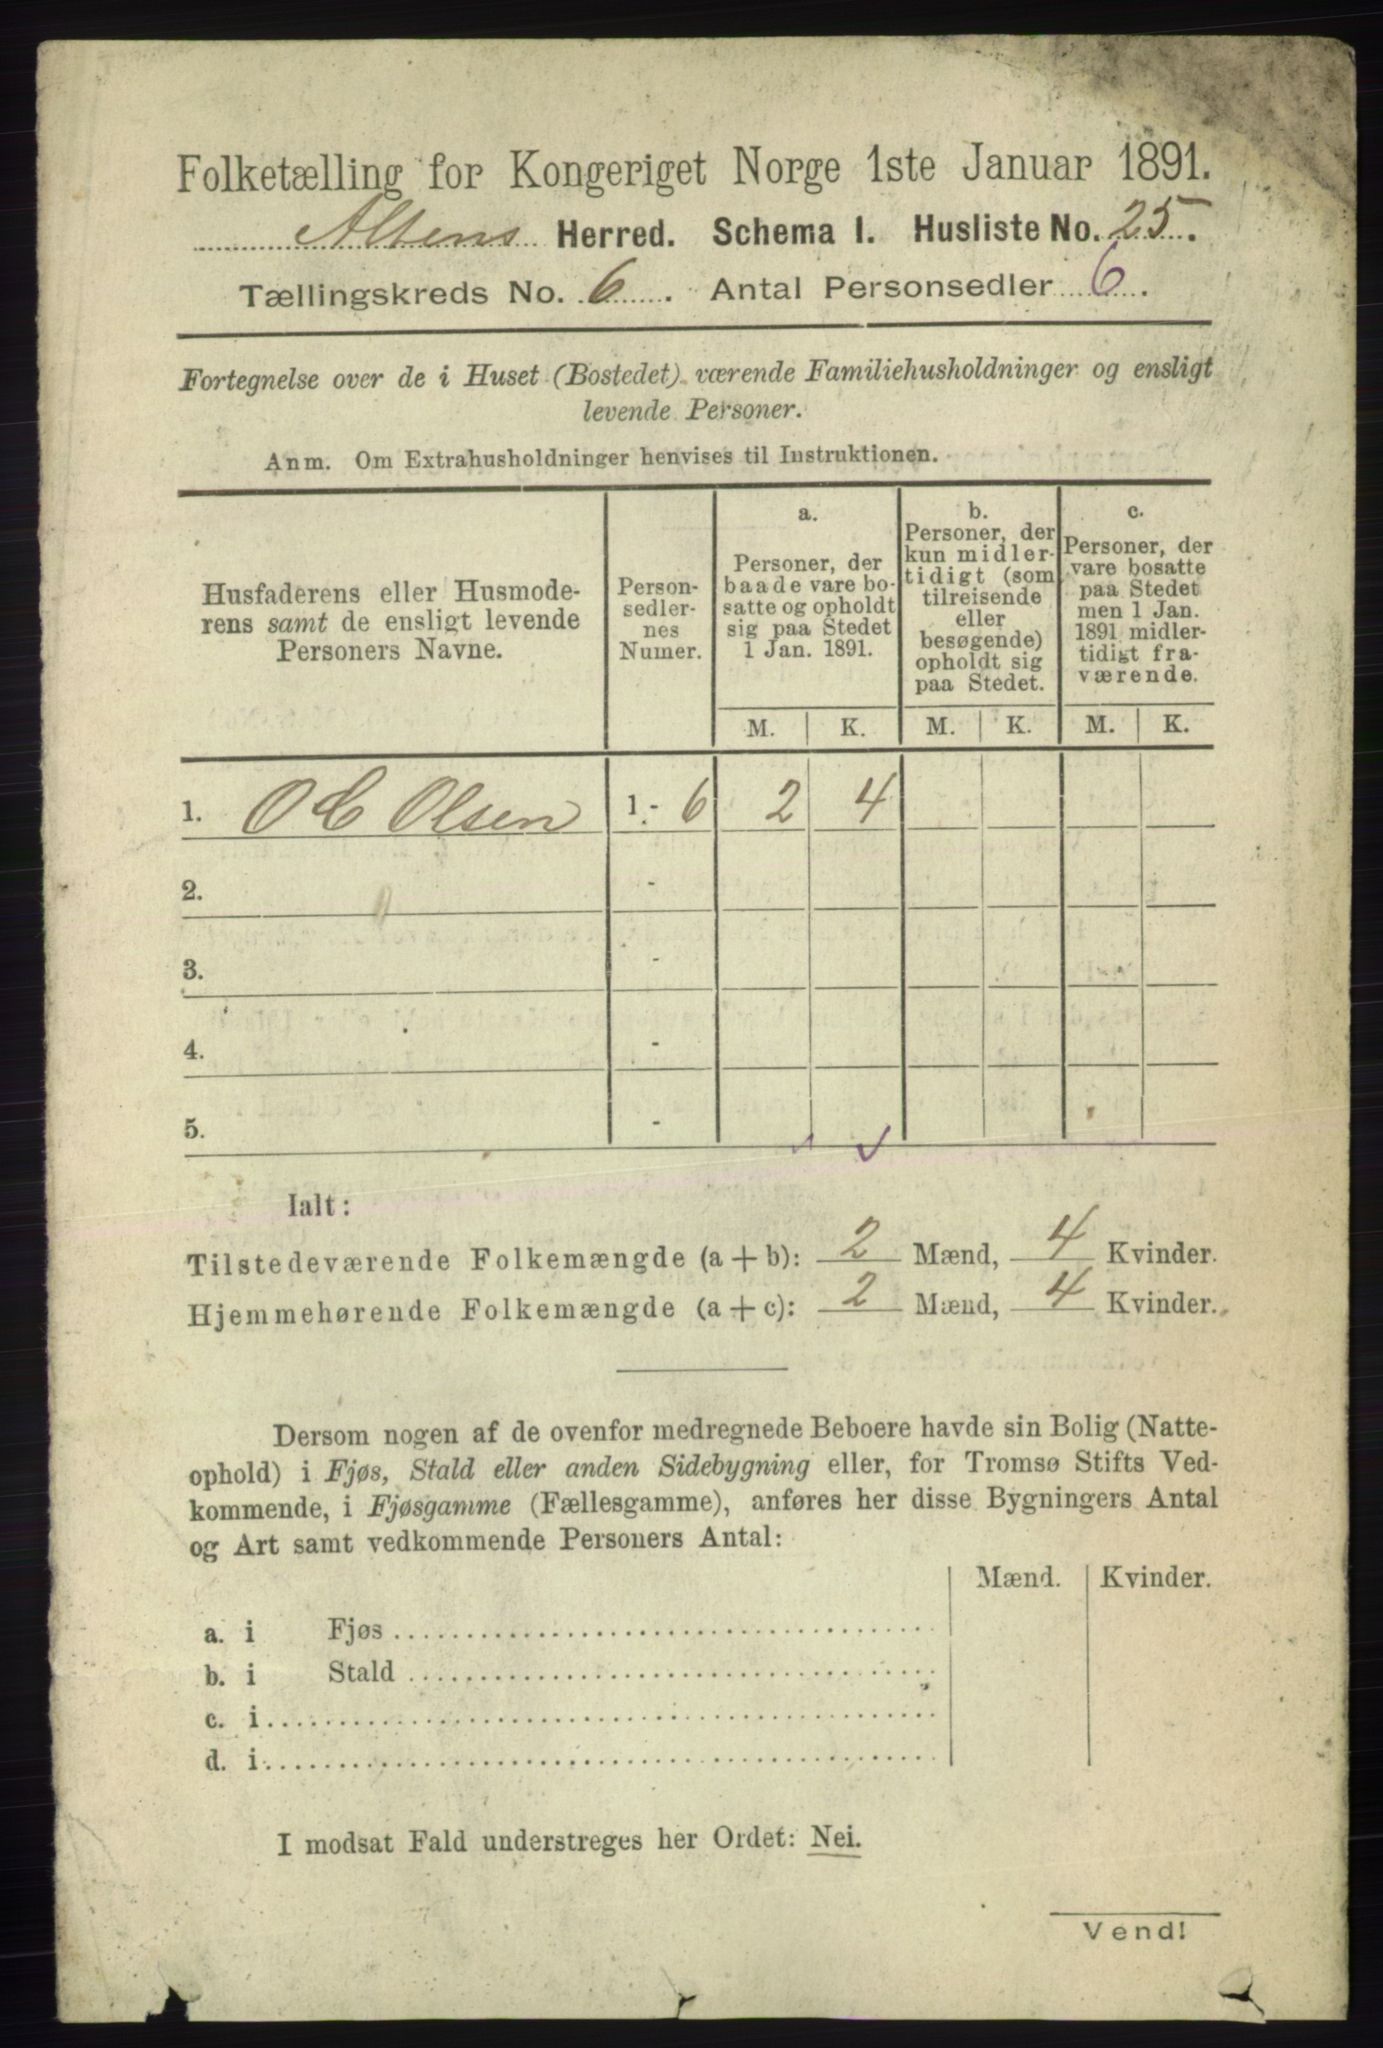 Folketælling for Kongeriget Norge 1ste Januar 1891.
Altens Herred. Schema I. Husliste No. 25.
Tællingskreds No. 6. Antal Personsedler 6.
Fortegnelse over de i Huset (Bostedet) værende Familiehusholdninger og ensligt
levende Personer.
Anm. Om Extrahusholdninger henvises til Instruktionen.
Husfaderens eller Husmode-
rens samt de ensligt levende
Personers Navne.
Person-
sedler-
nes
Numer.
a.
Personer, der
baade vare bo-
satte og opholdt
sig paa Stedet
1 Jan. 1891.
b.
Personer, der
kun midler-
tidigt (som
tilreisende
eller
besøgende)
opholdt sig
paa Stedet.
c.
Personer, der
vare bosatte
paa Stedet
men 1 Jan.
1891 midler-
tidigt fra-
værende.
M. K. M. K. M. K.
1. O C Olsen 1.- 6 2 4
2. -
3. -
4. -
5. -
Ialt:
Tilstedeværende Folkemængde (a + b): 2 Mænd, 4 Kvinder.
Hjemmehørende Folkemængde (a + c): 2 Mænd, 4 Kvinder.
Dersom nogen af de ovenfor medregnede Beboere havde sin Bolig (Natte-
ophold) i Fjøs, Stald eller anden Sidebygning eller, for Tromsø Stifts Ved-
kommende, i Fjøsgamme (Fællesgamme), anføres her disse Bygningers Antal
og Art samt vedkommende Personers Antal:
Mænd. Kvinder.
a. i Fjøs
b. i Stald
c. i
d. i
I modsat Fald understreges her Ordet: Nei.
Vend!